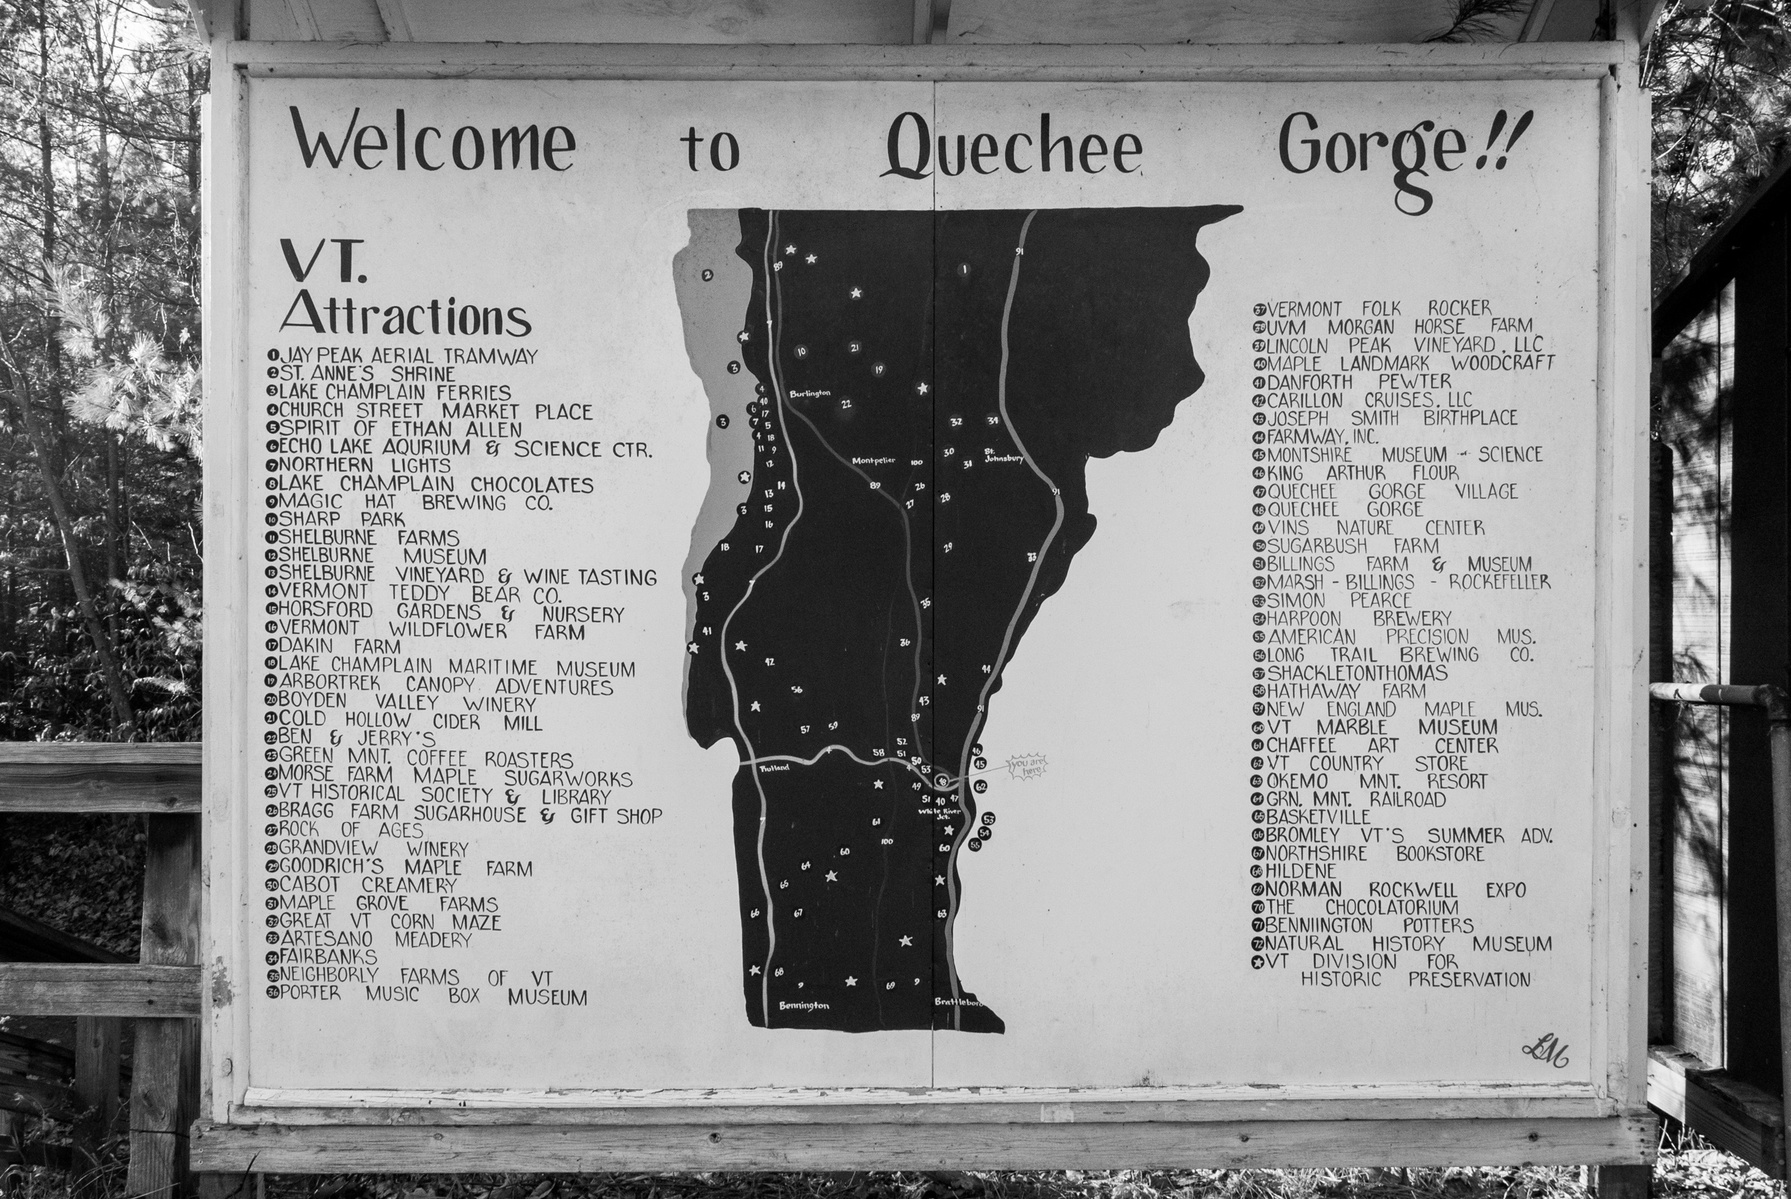 Welcome to Quechee Gorge!!
VT.
Attractions
1 JAY PEAK AERIAL TRAMWAY
2 ST. ANNE'S SHRINE
3 LAKE CHAMPLAIN FERRIES
4 CHURCH STREET MARKET PLACE
5 SPIRIT OF ETHAN ALLEN
6 ECHO LAKE AQURIUM & SCIENCE CTR.
7 NORTHERN LIGHTS
8 LAKE CHAMPLAIN CHOCOLATES
9 MAGIC HAT BREWING CO.
10 SHARP PARK
11 SHELBURNE FARMS
12 SHELBURNE MUSEUM
13 SHELBURNE VINEYARD & WINE TASTING
14 VERMONT TEDDY BEAR CO.
15 HORSFORD GARDENS & NURSERY
16 VERMONT WILDFLOWER FARM
17 DAKIN FARM
18 LAKE CHAMPLAIN MARITIME MUSEUM
19 ARBORTREK CANOPY ADVENTURES
20 BOYDEN VALLEY WINERY
21 COLD HOLLOW CIDER MILL
22 BEN & JERRY'S
23 GREEN MNT. COFFEE ROASTERS
24 MORSE FARM MAPLE SUGARWORKS
25 VT HISTORICAL SOCIETY & LIBRARY
26 BRAGG FARM SUGARHOUSE & GIFT SHOP
27 ROCK OF AGES
28 GRANDVIEW WINERY
29 GOODRICH'S MAPLE FARM
30 CABOT CREAMERY
31 MAPLE GROVE FARMS
32 GREAT VT CORN MAZE
33 ARTESANO MEADERY
34 FAIRBANKS
35 NEIGHBORLY FARMS OF VT
36 PORTER MUSIC BOX MUSEUM
Burlington
Montpelier
St. Johnsbury
Rutland
you are here
White River Jct.
Bennington
Brattleboro
37 VERMONT FOLK ROCKER
38 UVM MORGAN HORSE FARM
39 LINCOLN PEAK VINEYARD, LLC
40 MAPLE LANDMARK WOODCRAFT
41 DANFORTH PEWTER
42 CARILLON CRUISES, LLC
43 JOSEPH SMITH BIRTHPLACE
44 FARMWAY, INC.
45 MONTSHIRE MUSEUM - SCIENCE
46 KING ARTHUR FLOUR
47 QUECHEE GORGE VILLAGE
48 QUECHEE GORGE
49 VINS NATURE CENTER
50 SUGARBUSH FARM
51 BILLINGS FARM & MUSEUM
52 MARSH - BILLINGS - ROCKEFELLER
53 SIMON PEARCE
54 HARPOON BREWERY
55 AMERICAN PRECISION MUS.
56 LONG TRAIL BREWING CO.
57 SHACKLETONTHOMAS
58 HATHAWAY FARM
59 NEW ENGLAND MAPLE MUS.
60 VT MARBLE MUSEUM
61 CHAFFEE ART CENTER
62 VT COUNTRY STORE
63 OKEMO MNT. RESORT
64 GRN. MNT. RAILROAD
65 BASKETVILLE
66 BROMLEY VT'S SUMMER ADV.
67 NORTHSHIRE BOOKSTORE
68 HILDENE
69 NORMAN ROCKWELL EXPO
70 THE CHOCOLATORIUM
71 BENNIINGTON POTTERS
72 NATURAL HISTORY MUSEUM
VT DIVISION FOR
HISTORIC PRESERVATION
LM